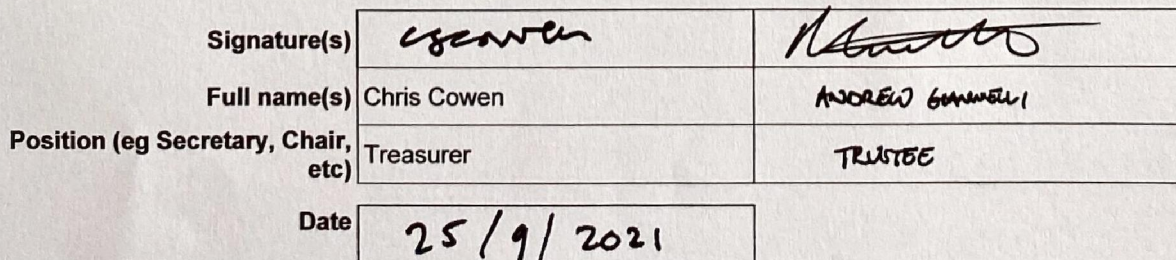 Signature(s) cscowen
Full name(s) Chris Cowen ANDREW GIANNELLI
Position (eg Secretary, Chair, etc) Treasurer TRUSTEE
Date 25/9/2021